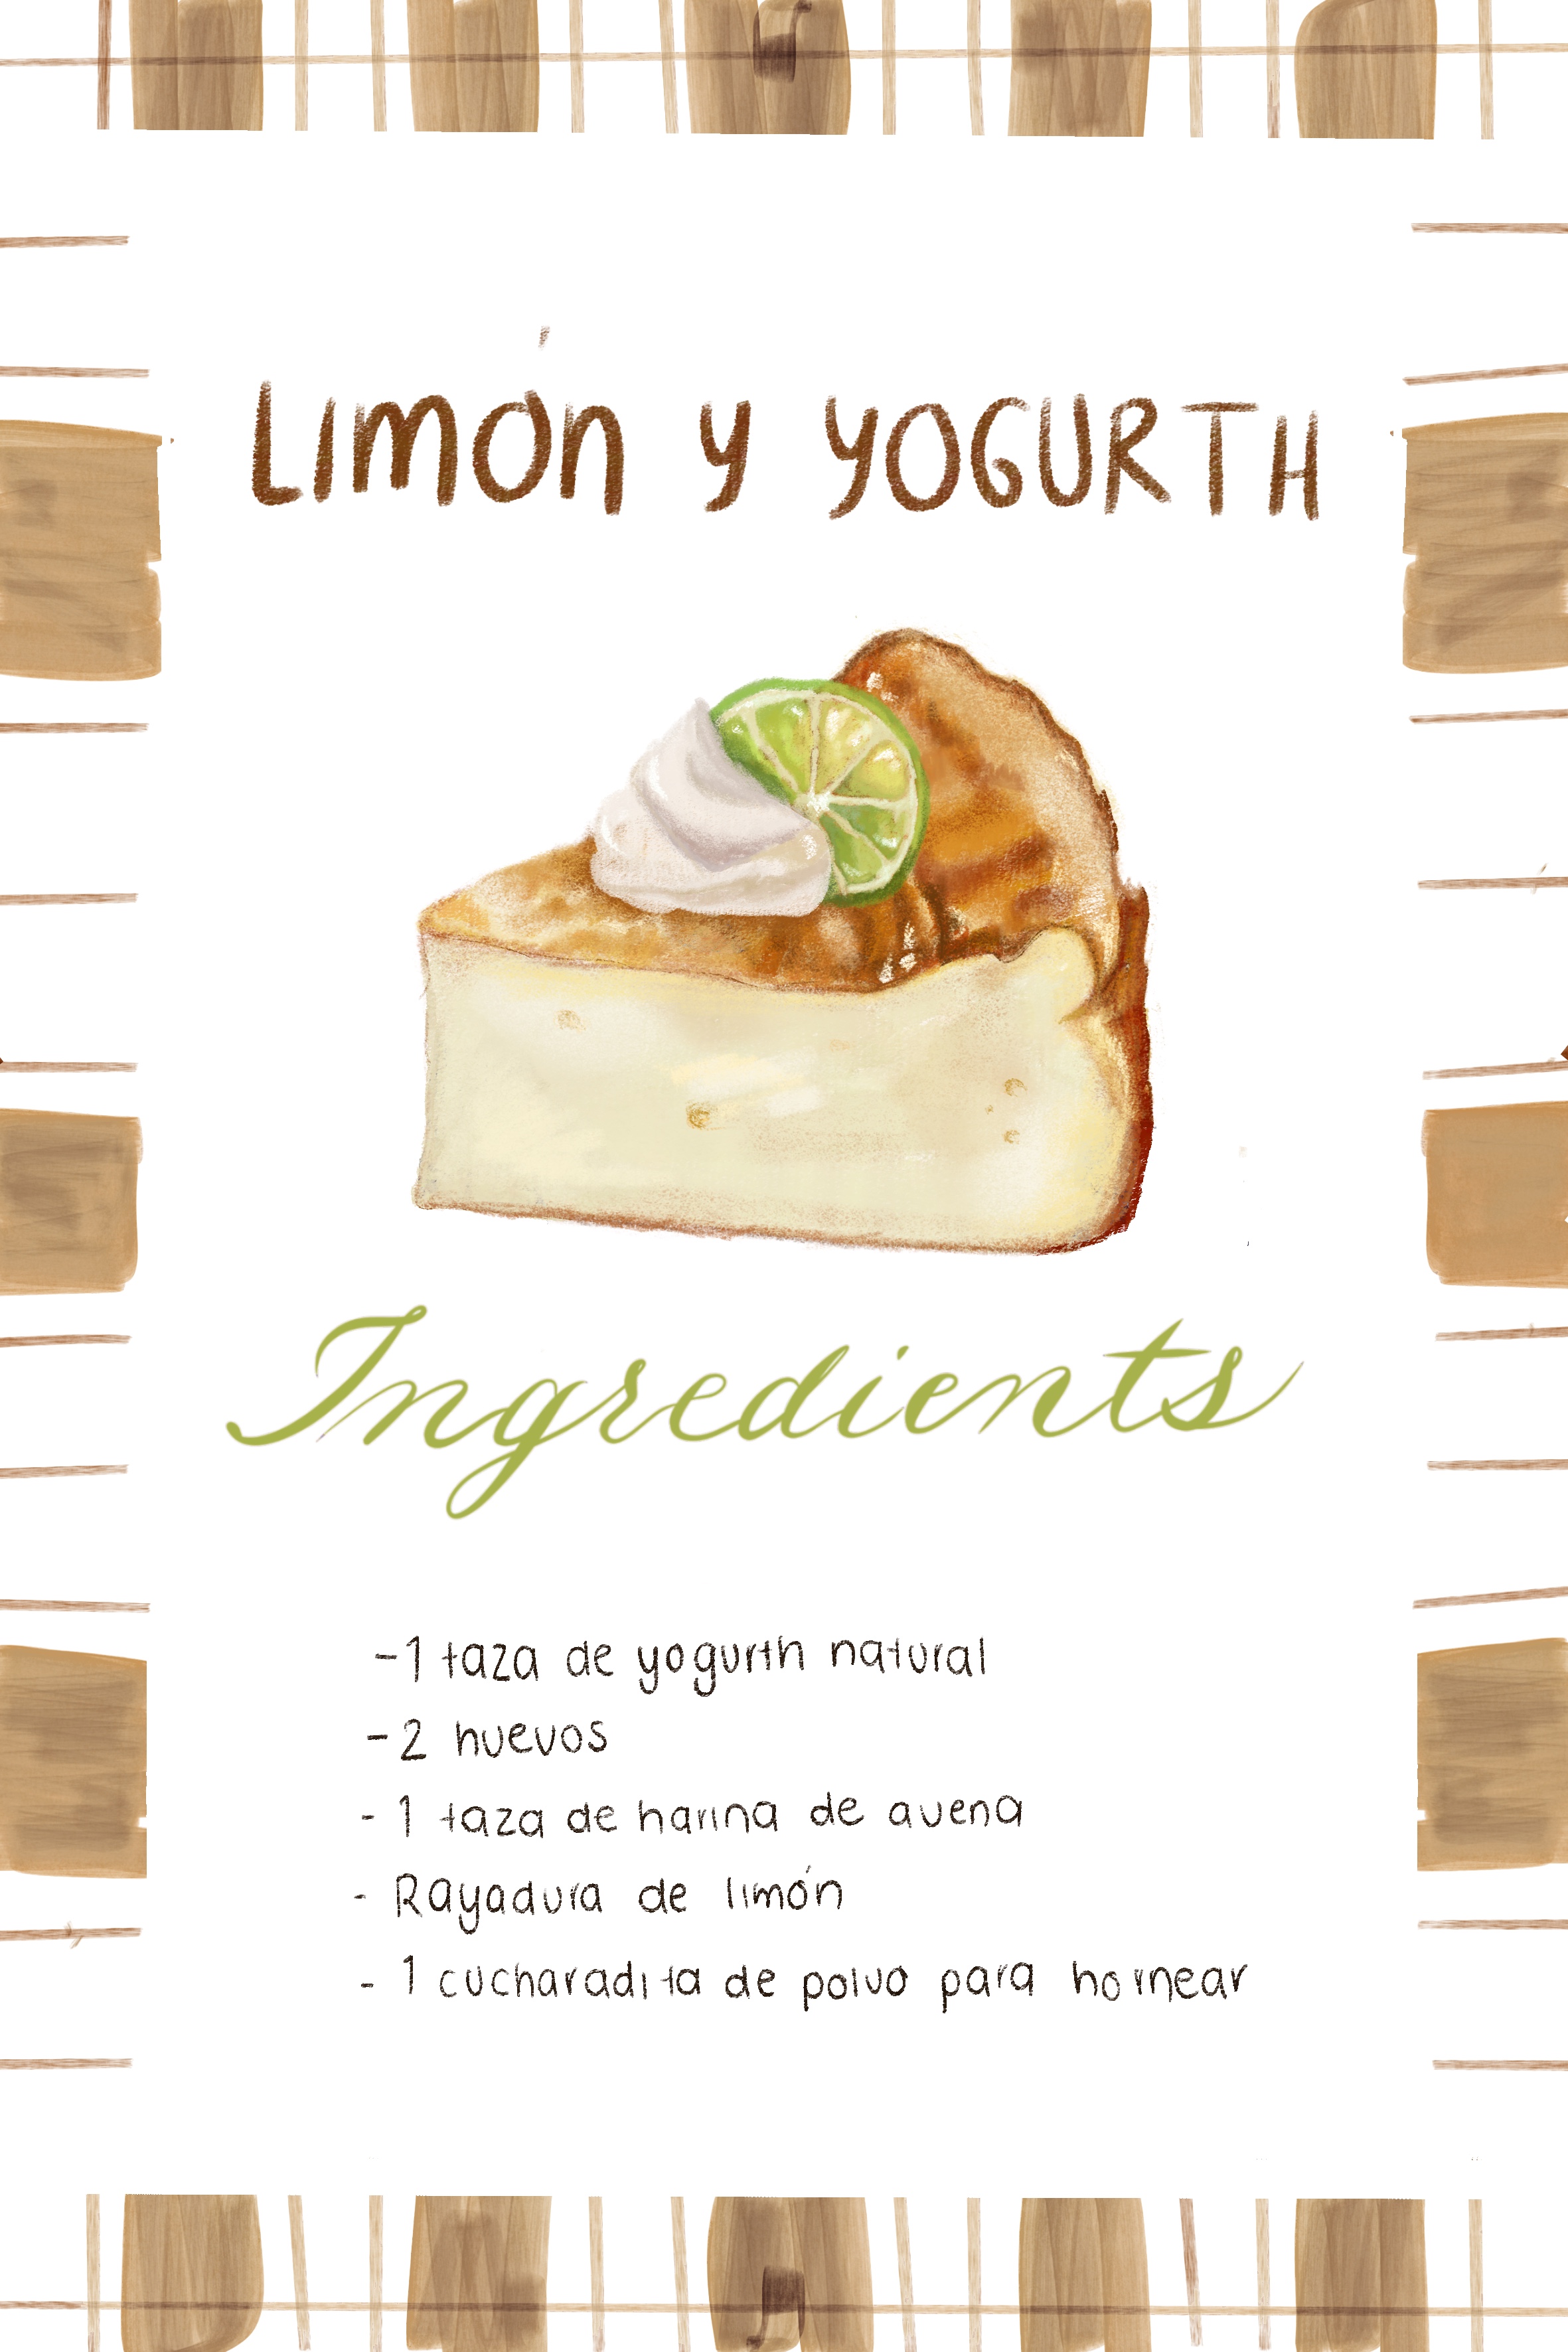 LIMÓN Y YOGURTH
Ingredients
-1 taza de yogurth natural
-2 huevos
- 1 taza de harina de avena
- Rayadura de limón
- 1 cucharadita de polvo para hornear